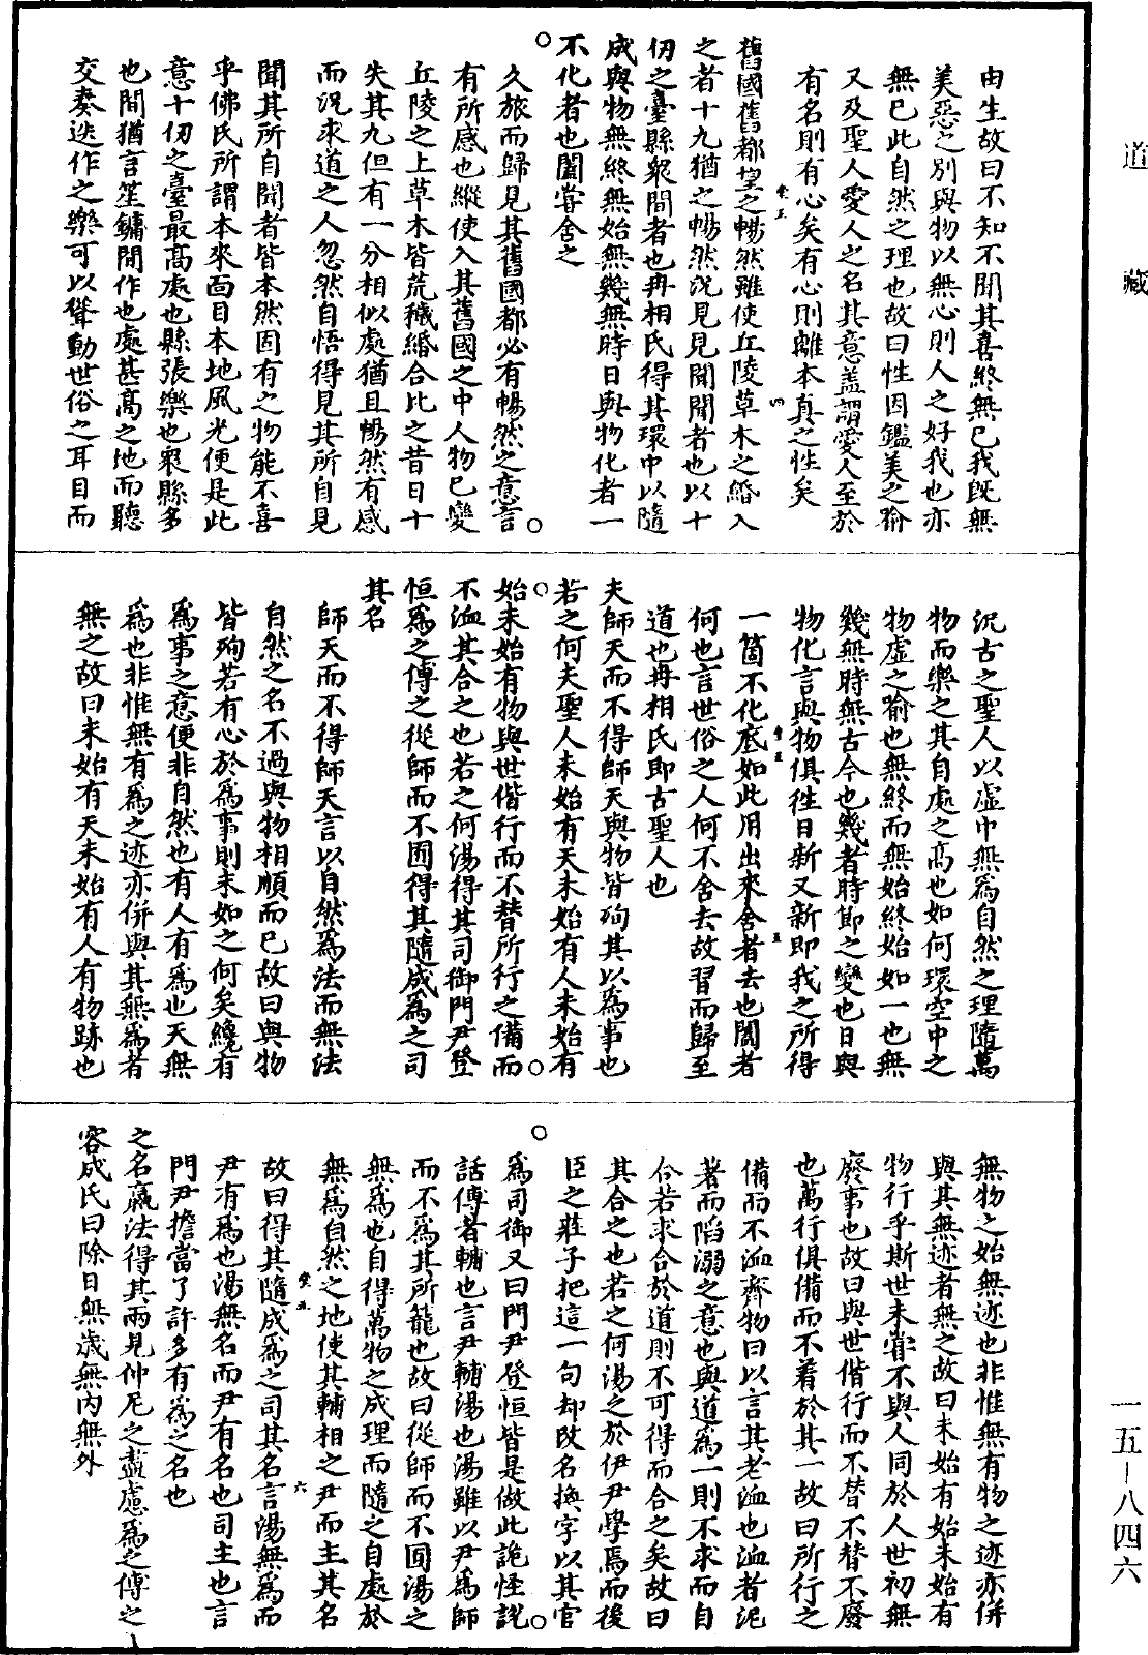 道藏
由生故曰不知不聞其喜終無已我既無
美惡之別與物以無心則人之好我也亦
無已此自然之理也故曰性因鑑美之喻
又及聖人愛人之名其意蓋謂愛人至於
有名則有心矣有心則離本真之性矣
舊國舊都望之暢然雖使丘陵草木之緡入
之者十九猶之暢然況見見聞聞者也以十
仞之臺縣衆間者也冉相氏得其環中以隨
成與物無終無始無幾無時日與物化者一
不化者也闔嘗舍之
久旅而歸見其舊國都必有暢然之意言
有所感也縱使入其舊國之中人物已變
丘陵之上草木皆荒穢緡合比之昔日十
失其九但有一分相似處猶且暢然有感
而況求道之人忽然自悟得見其所自見
聞其所自聞者皆本然固有之物能不喜
乎佛氏所謂本來面目本地風光便是此
意十仞之臺最高處也縣張樂也衆縣多
也間猶言笙鏞間作也處甚高之地而聽
交奏迭作之樂可以聳動世俗之耳目而
況古之聖人以虛中無爲自然之理隨萬
物而樂之其自處之高也如何環空中之
物虛之喻也無終而無始終始如一也無
幾無時無古今也幾者時節之變也日與
物化言與物俱往日新又新即我之所得
一箇不化底如此用出來舍者去也闔者
何也言世俗之人何不舍去故習而歸至
道也冉相氏即古聖人也
夫師天而不得師天與物皆殉其以爲事也
若之何夫聖人未始有天未始有人未始有
始未始有物與世偕行而不替所行之備而
不洫其合之也若之何湯得其司御門尹登
恒爲之傅之從師而不囿得其隨成爲之司
其名
師天而不得師天言以自然爲法而無法
自然之名不過與物相順而已故曰與物
皆殉若有心於爲事則未如之何矣纔有
爲事之意便非自然也有人有爲也天無
爲也非惟無有爲之迹亦併與其無爲者
無之故曰未始有天未始有人有物跡也
無物之始無迹也非惟無有物之迹亦併
與其無迹者無之故曰未始有始未始有
物行乎斯世未嘗不與人同於人世初無
廢事也故曰與世偕行而不替不替不廢
也萬行俱備而不着於其一故曰所行之
備而不洫齊物曰以言其老洫也洫者泥
著而陷溺之意也與道爲一則不求而自
合若求合於道則不可得而合之矣故曰
其合之也若之何湯之於伊尹學焉而後
臣之莊子把這一句却改名換字以其官
爲司御又曰門尹登恒皆是做此詭怪說
話傅者輔也言尹輔湯也湯雖以尹爲師
而不爲其所籠也故曰從師而不囿湯之
無爲也自得萬物之成理而隨之自處於
無爲自然之地使其輔相之尹而主其名
故曰得其隨成爲之司其名言湯無爲而
尹有爲也湯無名而尹有名也司主也言
門尹擔當了許多有爲之名也
之名嬴法得其兩見仲尼之盡慮爲之傅之
容成氏曰除日無歲無內無外
一五－八四六